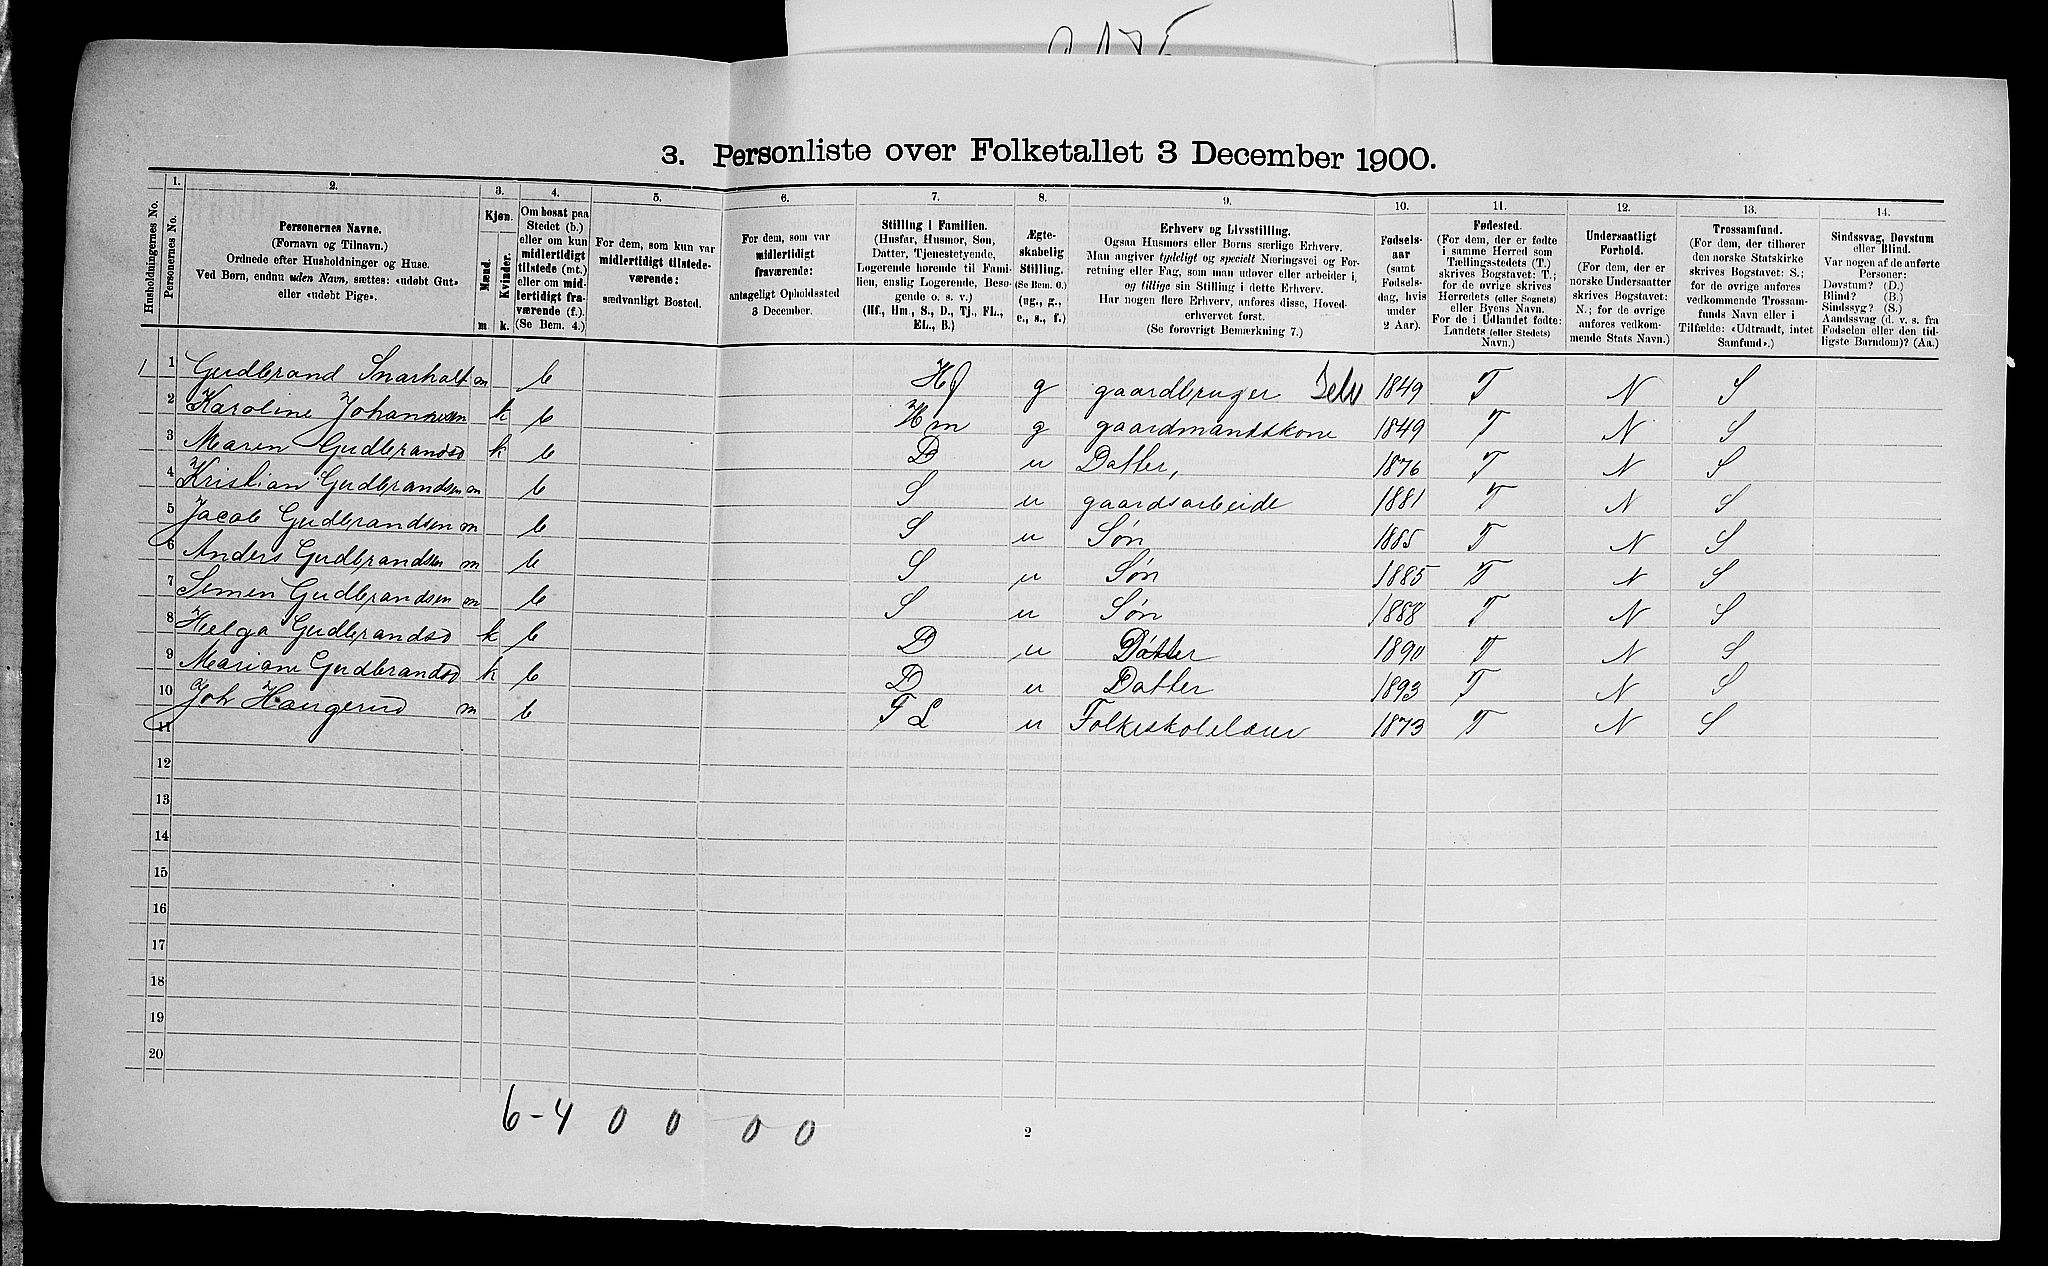 3. Personliste over Folketallet 3 December 1900.
Husholdningernes No.
1.
Personernes No.
2.
Personernes Navne.
(Fornavn og Tilnavn.)
Ordnede efter Husholdninger og Huse.
Ved Børn, endnu uden Navn, sættes: «udøbt Gut»
eller «udøbt Pige».
3.
Kjøn.
Mænd.
Kvinder.
m. k.
4.
Om bosat paa
Stedet (b.)
eller om kun
midlertidigt
tilstede (mt.)
eller om mid-
lertidigt fra-
værende (f.).
(Se Bem. 4.)
5.
For dem, som kun var
midlertidigt tilstede-
værende:
sædvanligt Bosted.
6.
For dem, som var
midlertidigt
fraværende:
antageligt Opholdssted
3 December.
7.
Stilling i Familien.
(Husfar, Husmor, Søn,
Datter, Tjenestetyende,
Logerende hørende til Fami-
lien, enslig Logerende, Beso-
gende o. s. v.)
(Hf., Hm., S., D., Tj., FL.,
EL., B.)
8.
Ægte-
skabelig
Stilling.
(Se Bem. 6.)
(ug., g.,
e., s., f.)
9.
Erhverv og Livsstilling.
Ogsaa Husmors eller Børns særlige Erhverv.
Man angiver tydeligt og specielt Næringsvei og For-
retning eller Fag, som man udøver eller arbeider i,
og tillige sin Stilling i dette Erhverv.
Har nogen flere Erhverv, anføres disse, Hoved-
erhvervet først.
(Se forøvrigt Bemærkning 7.)
10.
Fødsels-
aar
(samt
Fødsels-
dag, hvis
under
2 Aar).
11.
Fødested.
(For dem, der er fødte
i samme Herred som
Tællingsstedets (T.)
skrives Bogstavet: T.;
for de øvrige skrives
Herredets (eller Sognets)
eller Byens Navn.
For de i Udlandet fødte:
Landets (eller Stedets)
Navn.)
12.
Undersaatligt
Forhold.
(For dem, der er
norske Undersaatter
skrives Bogstavet:
N.; for de øvrige
anføres vedkom-
mende Stats Navn.)
13.
Trossamfund.
(For dem, der tilhører
den norske Statskirke
skrives Bogstavet: S.;
for de øvrige anføres
vedkommende Trossam-
funds Navn eller i
Tilfælde: «Udtraadt, intet
Samfund».)
14.
Sindssvag, Døvstum
eller Blind.
Var nogen af de anførte
Personer:
Døvstum? (D.)
Blind? (B.)
Sindssyg? (S.)
Aandssvag (d. v. s. fra
Fødselen eller den tid-
ligste Barndom)? (Aa.)
1 1 Gudbrand Snarholt m b Hf g gaardbruger Selv 1849 T N S
2 Karoline Johannesen k b Hm g gaardmandskone 1849 T N S
3 Maren Gudbrandsd k b D u Datter, 1876 T N S
4 Kristian Gudbrandsen m b S u gaardsarbeide 1881 T N S
5 Jacob Gudbrandsen m b S u Søn 1885 T N S
6 Anders Gudbrandsen m b S u Søn 1885 T N S
7 Simen Gudbrandsen m b S u Søn 1888 T N S
8 Helga Gudbrandsd k b D u Datter 1890 T N S
9 Mariane Gudbrandsd k b D u Datter 1893 T N S
10 Joh Haugerud m b FL u Folkeskolelærer 1873 T N S
11
12
13
14
15
16
17
18
19
20
6-4 0 0 0 0
2